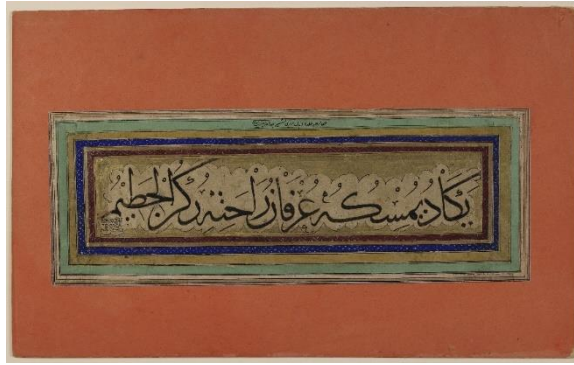 يَكَادُ يُمْسِكُهُ عِرْفَانُ رَاحَتِهِ رُكْنُ الْحَطِيمِ